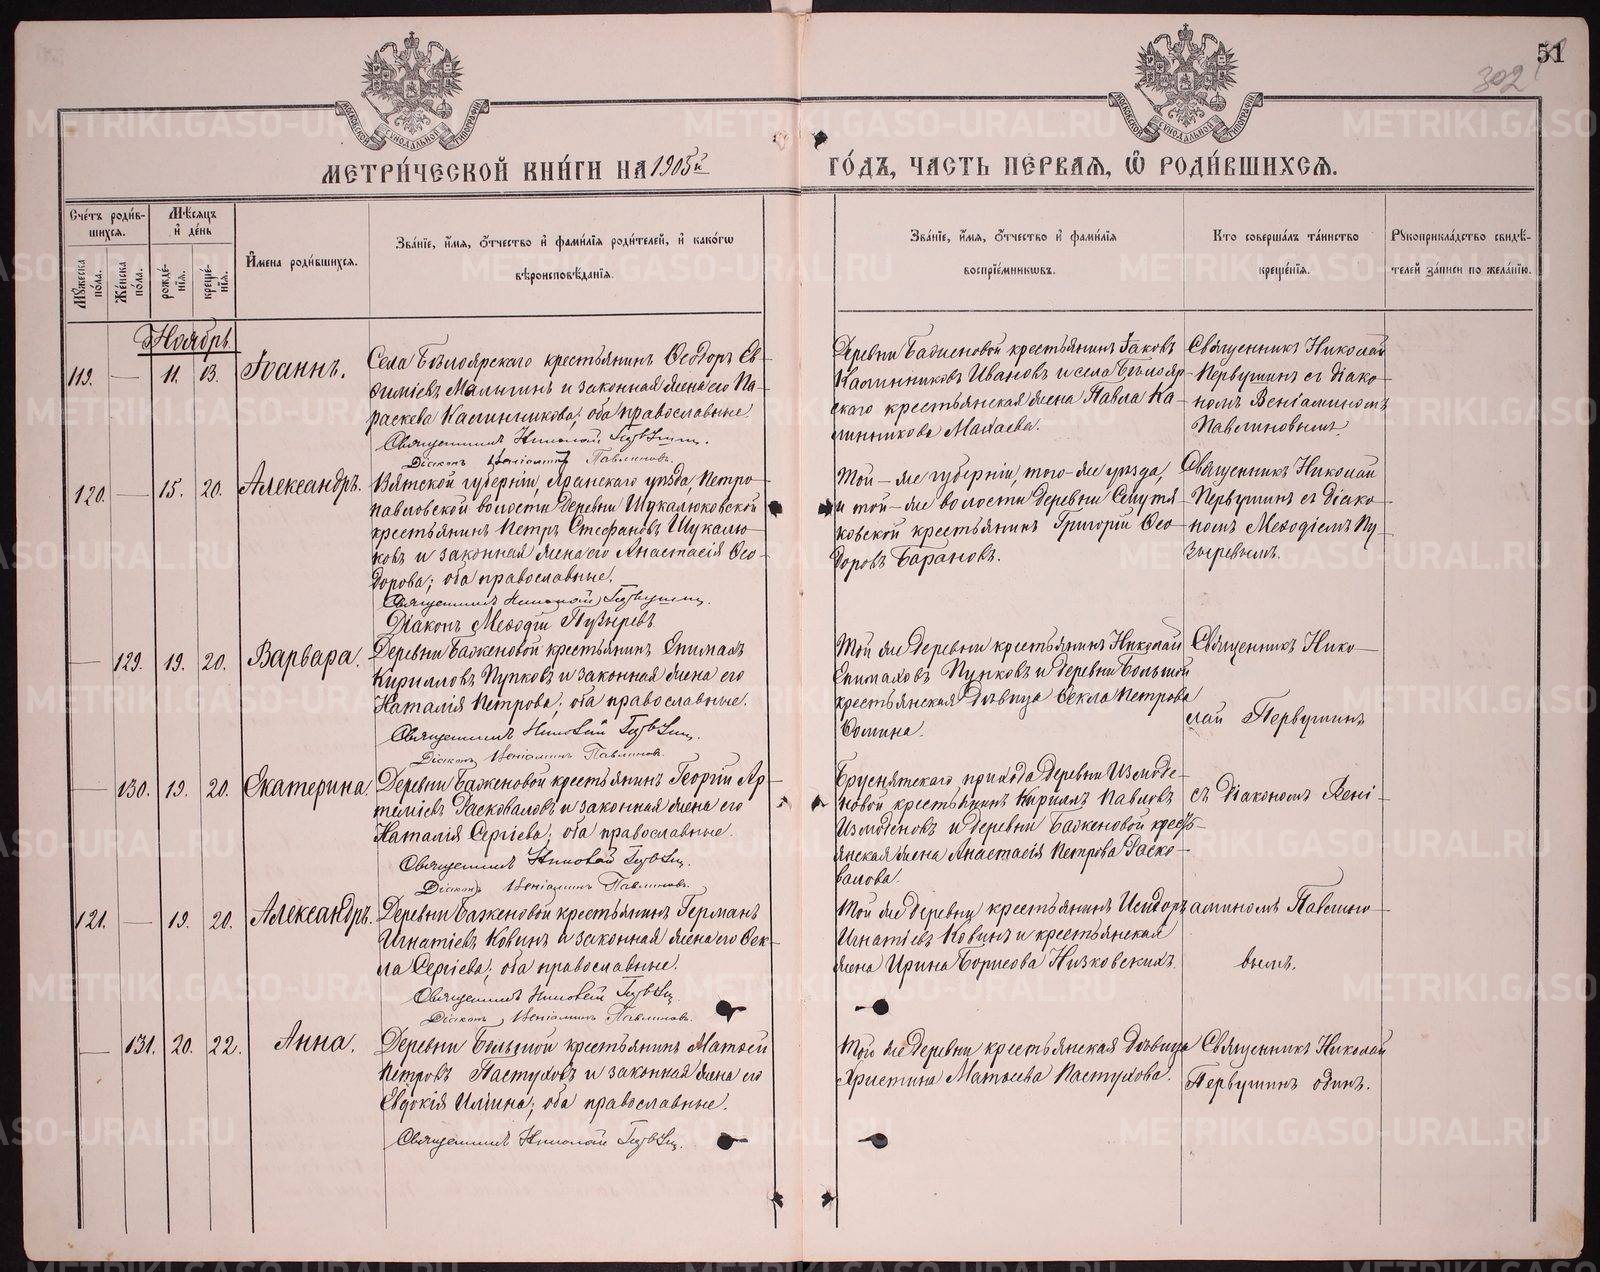 51
302
МОСКОВСКОЙ СѴНОДАЛЬНОЙ ТИПОГРАФІИ
МОСКОВСКОЙ СѴНОДАЛЬНОЙ ТИПОГРАФІИ
МЕТРИ́ЧЕСКОЙ КНИ́ГИ НА 1905й ГО́ДЪ, ЧА́СТЬ ПЕ́РВАЯ, Ѡ҆ РОДИ́ВШИХСЯ.
Сче́тъ роди́вшихся.
Мѣ́сяцъ и҆ де́нь
И҆мена роди́вшихся.
Зва́нїе, и҆́мя, ѻ҆́тчество и҆ фами́лїя роди́телей, и҆ како́гѡ вѣроисповѣ́данїя.
Зва́нїе, и҆́мя, ѻ҆́тчество и҆ фами́лїя воспрїе́мникѡвъ.
Кто̀ соверша́лъ та́инство креще́нїя.
Рꙋкоприкла́дство свидѣ́телей за́писи по жела́нїю.
Мꙋ́жеска по́ла.
Же́нска по́ла.
рожде́нїя.
креще́нїя.
Ноябрь
119. — 11. 13. Іоаннъ.
Села Бѣлоярскаго крестьянинъ Ѳеодоръ Ев-
ѳиміевъ Малыгинъ и законная жена его Па-
раскева Калинникова; оба православные.
Священникъ Николай Первушинъ.
Діаконъ Веніаминъ Павлиновъ.
Деревни Баженовой крестьянинъ Іаковъ
Калинниковъ Ивановъ и села Бѣлояр-
скаго крестьянская жена Павла Ка-
линникова Махаева.
Священникъ Николай
Первушинъ съ діако-
номъ Веніаминомъ
Павлиновымъ.
120. — 15. 20. Александръ.
Вятской губерніи, Яранскаго уѣзда, Петро-
павловской волости деревни Шукалюковской
крестьянинъ Петръ Стефановъ Шукалю-
ковъ и законная жена его Анастасія Ѳео-
дорова; оба православные.
Священникъ Николай Первушинъ.
Діаконъ Меѳодій Пузыревъ
Той-же губерніи, того-же уѣзда,
и той-же волости деревни Сенутя
ковской крестьянинъ Григорій Ѳео-
доровъ Барановъ.
Священникъ Николай
Первушинъ съ діако-
номъ Меѳодіемъ Пу-
зыревымъ.
— 129. 19. 20. Варвара.
Деревни Баженовой крестьянинъ Епимахъ
Кирилловъ Пупковъ и законная жена его
Наталія Петрова; оба православные.
Священникъ Николай Первушинъ.
Діаконъ Веніаминъ Павлиновъ.
Той же деревни крестьянинъ Николай
Епимаховъ Пупковъ и деревни Большой
крестьянская дѣвица Ѳекла Петрова
Ѳомина.
Священникъ Нико-
лай Первушинъ
— 130. 19. 20. Екатерина.
Деревни Баженовой крестьянинъ Георгій Ар-
теміевъ Расковаловъ и законная жена его
Наталія Сергіева; оба православные.
Священникъ Николай Первушинъ.
Діаконъ Веніаминъ Павлиновъ.
Бруснятскаго прихода деревни Измоде-
новой крестьянинъ Кириллъ Павловъ
Измоденовъ и деревни Баженовой кресть-
янская жена Анастасія Петрова Раско-
валова.
съ діакономъ Вені-
121. — 19. 20. Александръ.
Деревни Баженовой крестьянинъ Германъ
Игнатіевъ Ковинъ и законная жена его Ѳек-
ла Сергіева; оба православные.
Священникъ Николай Первушинъ
Діаконъ Веніаминъ Павлиновъ.
Той же деревни крестьянинъ Исидоръ
Игнатіевъ Ковинъ и крестьянская
жена Ирина Борисова Низковскихъ.
аминомъ Павлино-
вымъ.
— 131. 20. 22. Анна.
Деревни Большой крестьянинъ Матѳей
Петровъ Пастуховъ и законная жена его
Евдокія Иліина; оба православные.
Священникъ Николай Первушинъ.
Той же деревни крестьянская дѣвица
Христина Матѳеева Пастухова.
Священникъ Николай
Первушинъ одинъ.
METRIKI.GASO-URAL.RU